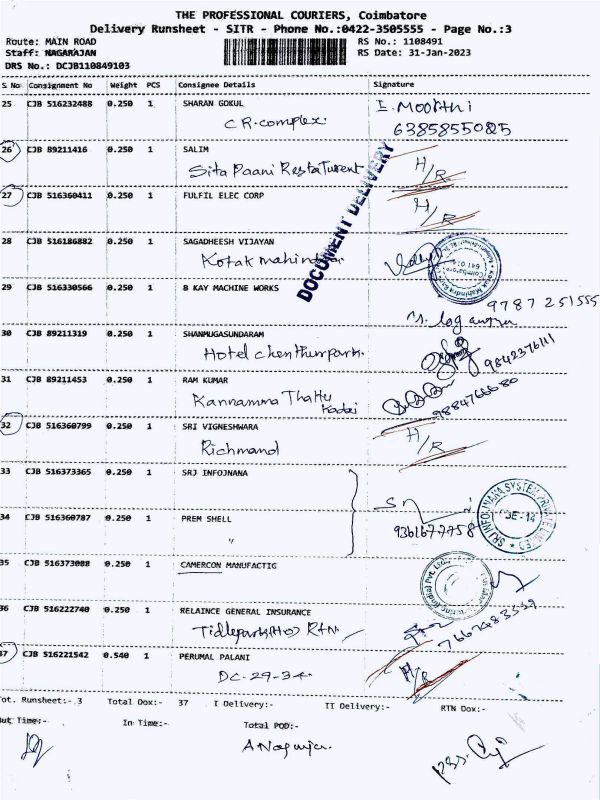 THE PROFESSIONAL COURIERS, Coimbatore
Delivery Runsheet - SITR - Phone No.:0422-3505555 - Page No.:3
Route: MAIN ROAD
Staff: NAGARAJAN
DRS No.: DCJB110849103
RS No.: 1108491
RS Date: 31-Jan-2023
S No Consignment No Weight PCS Consignee Details Signature
25 CJB 516232488 0.250 1 SHARAN GOKUL
CR.complex.
I. Moorthi
6385855025
26 CJB 89211416 0.250 1 SALIM
Sita Paani RestaTurent H/R
27 CJB 516360411 0.250 1 FULFIL ELEC CORP
H/R
DOCUMENT DELIVERY
28 CJB 516186882 0.250 1 SAGADHEESH VIJAYAN
Kotak mahindra
29 CJB 516330566 0.250 1 B KAY MACHINE WORKS
9787 251555
30 CJB 89211319 0.250 1 SHANMUGASUNDARAM
Hotel chenthurpark.
9842376111
31 CJB 89211453 0.250 1 RAM KUMAR
Kannamma Thattu
Kadai
9884766680
32 CJB 516360799 0.250 1 SRI VIGNESHWARA
Richmand H/R
33 CJB 516373365 0.250 1 SRJ INFOJNANA
34 CJB 516360787 0.250 1 PREM SHELL
"
9361677758
35 CJB 516373088 0.250 1 CAMERCON MANUFACTIG
36 CJB 516222740 0.250 1 RELAINCE GENERAL INSURANCE
37 CJB 516221542 0.540 1 PERUMAL PALANI
DC-29-34. H/R
Tot. Runsheet:- 3 Total Dox:- 37 I Delivery:- II Delivery:- RTN Dox:-
Out Time:- In Time:- Total POD:-